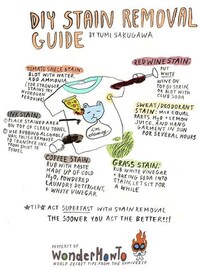 DIY STAIN REMOVAL
GUIDE BY YUMI SAKUGAWA
TOMATO SAUCE STAIN:
BLOT WITH WATER,
ADD AMMONIA
(FOR STRONGER
STAINS TRY
HYDROGEN
PEROXIDE)
RED WINE STAIN:
PUT
WHITE
WINE ON
TOP OF STAIN,
BLOT WITH
CLUB SODA
SWEAT/DEODORANT
STAIN: MIX EQUAL
PARTS H2O + LEMON
JUICE. RUB AND HANG
GARMENT IN SUN
FOR SEVERAL HOURS
INK STAIN:
PLACE STAINED PART
ON TOP OF CLEAN TOWEL
USE RUBBING ALCOHOL
TO TRANSFER
INK FROM SHIRT TO
TOWEL
COFFEE STAIN:
RUB WITH PASTE
MADE UP OF COLD
H2O, POWDERED
LAUNDRY DETERGENT,
+ WHITE VINEGAR.
GRASS STAIN:
RUB WHITE VINEGAR
+ BAKING SODA INTO
STAIN, LET SIT FOR
A WHILE
*TIP* ACT SUPERFAST WITH STAIN REMOVAL
THE SOONER YOU ACT THE BETTER!!!
PROPERTY OF
WonderHowTo
WORLD SECRET TIPS FROM THE UNIVERSE